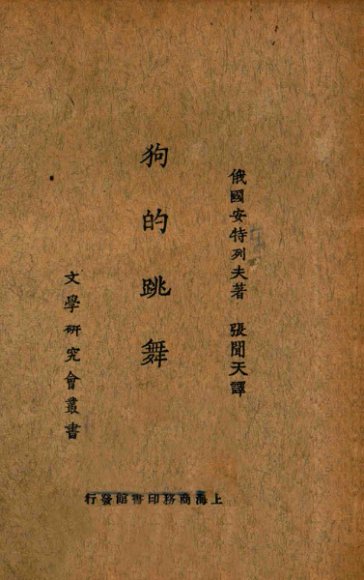 俄國安特列夫著 張聞天譯
狗的跳舞
文學研究會叢書
上海商務印書館發行